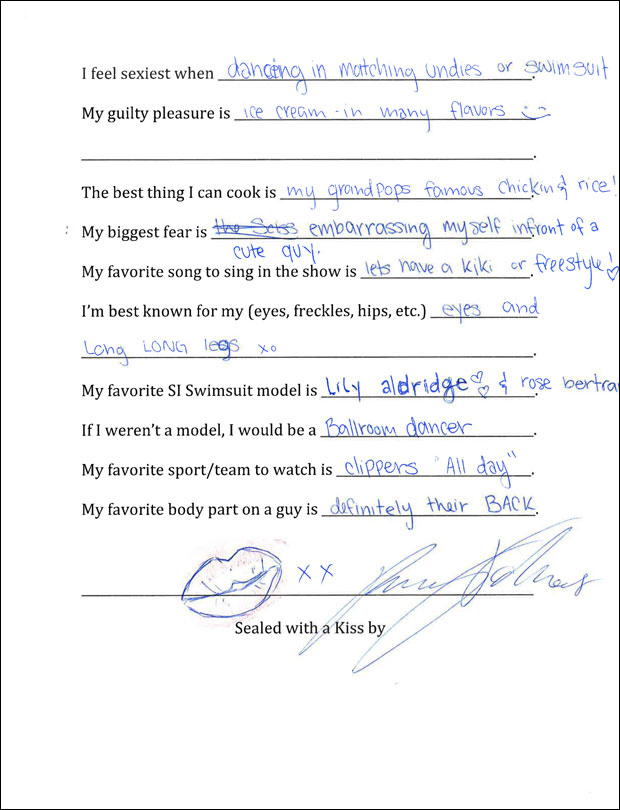 I feel sexiest when dancing in matching undies or swimsuit
My guilty pleasure is ice cream - in many flavors
.
The best thing I can cook is my grandpops famous chickin & rice!
My biggest fear is the Seiss embarrassing myself infront of a
cute guy.
My favorite song to sing in the show is lets have a kiki or freestyle!
I'm best known for my (eyes, freckles, hips, etc.) eyes and
Long LONG legs xo.
My favorite SI Swimsuit model is Lily aldridge & rose bertra
If I weren't a model, I would be a Ballroom dancer.
My favorite sport/team to watch is clippers "All day".
My favorite body part on a guy is definitely their BACK.
X X
Sealed with a Kiss by